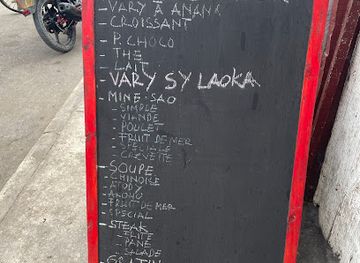 - VARY À ANANA
- CROISSANT
- P. CHOCO
- THE
- LAIT
- VARY SY LAOKA
- MINE-SAO
- SIMPLE
- VIANDE
- POULET
- FRUIT DE MER
- SPECIALE
- CREVETTE
- SOUPE
- CHINOISE
- ATODY
- FRUIT DE MER
- SPECIAL
- STEAK
- FRITE
- PANE
- SALADE